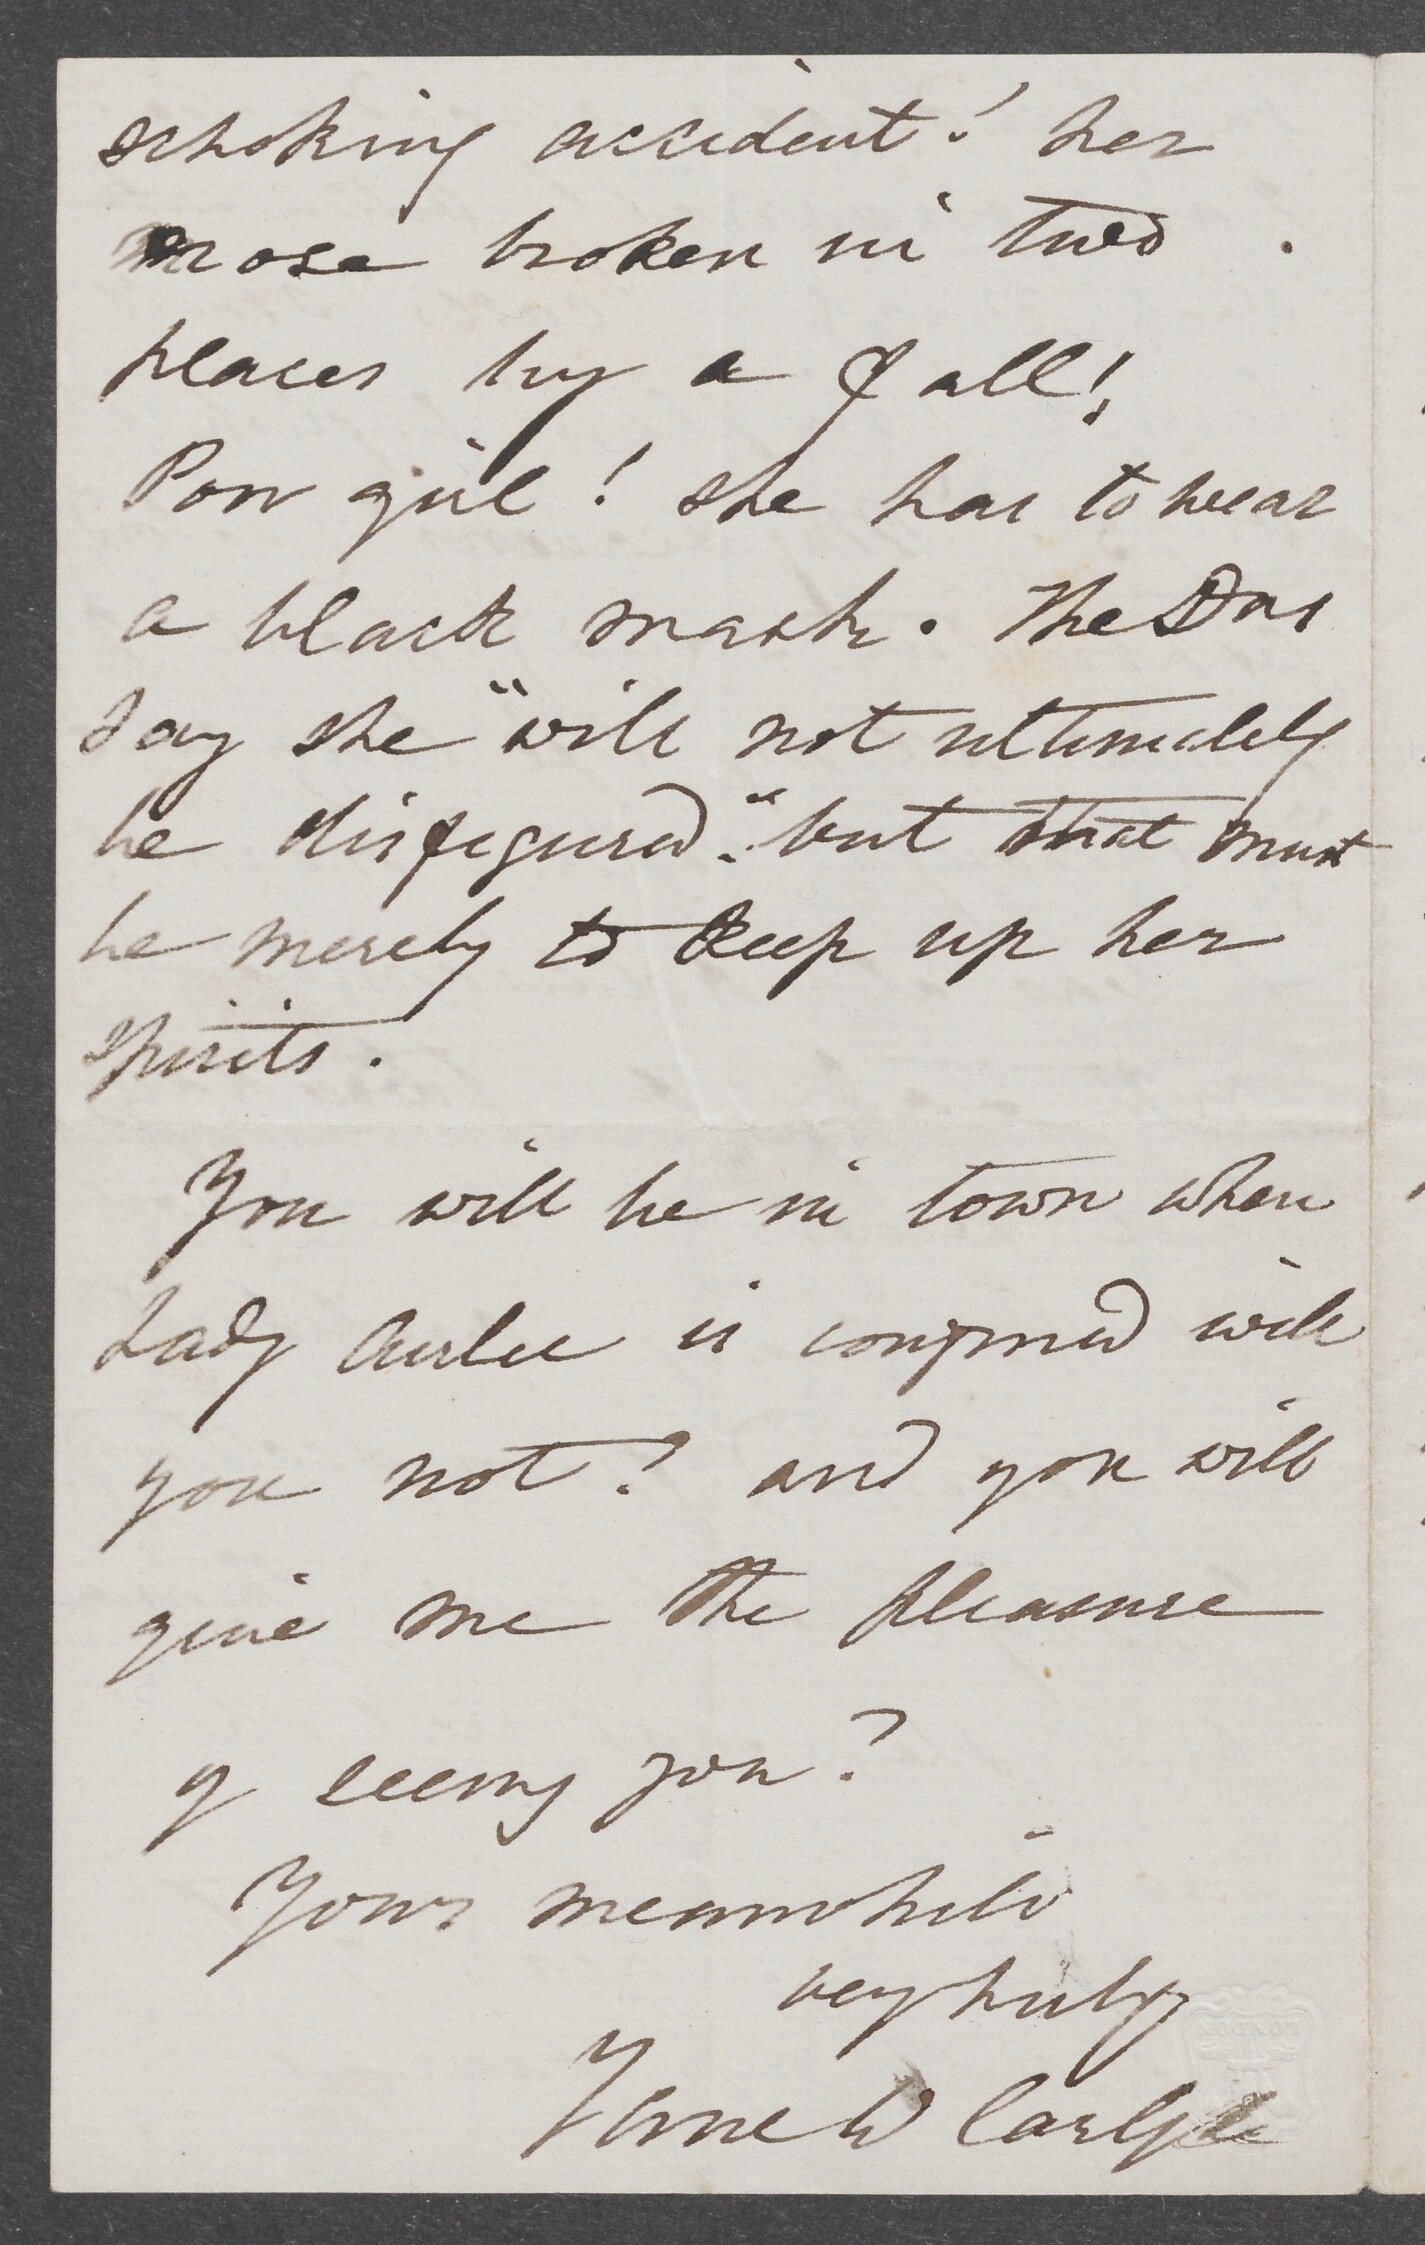 schoking accident! her
nose broken in two
places by a fall!
Poor girl! she has to wear
a black mask. The Drs
say she "will not ultimately
be disfigured". but that must
be merely to keep up her
spirits.
You will be in town when
Lady Airlie is confined will
you not? and you will
give me the pleasure
of seeing you?
Yours meanwhile
very truly
Jane W Carlyle